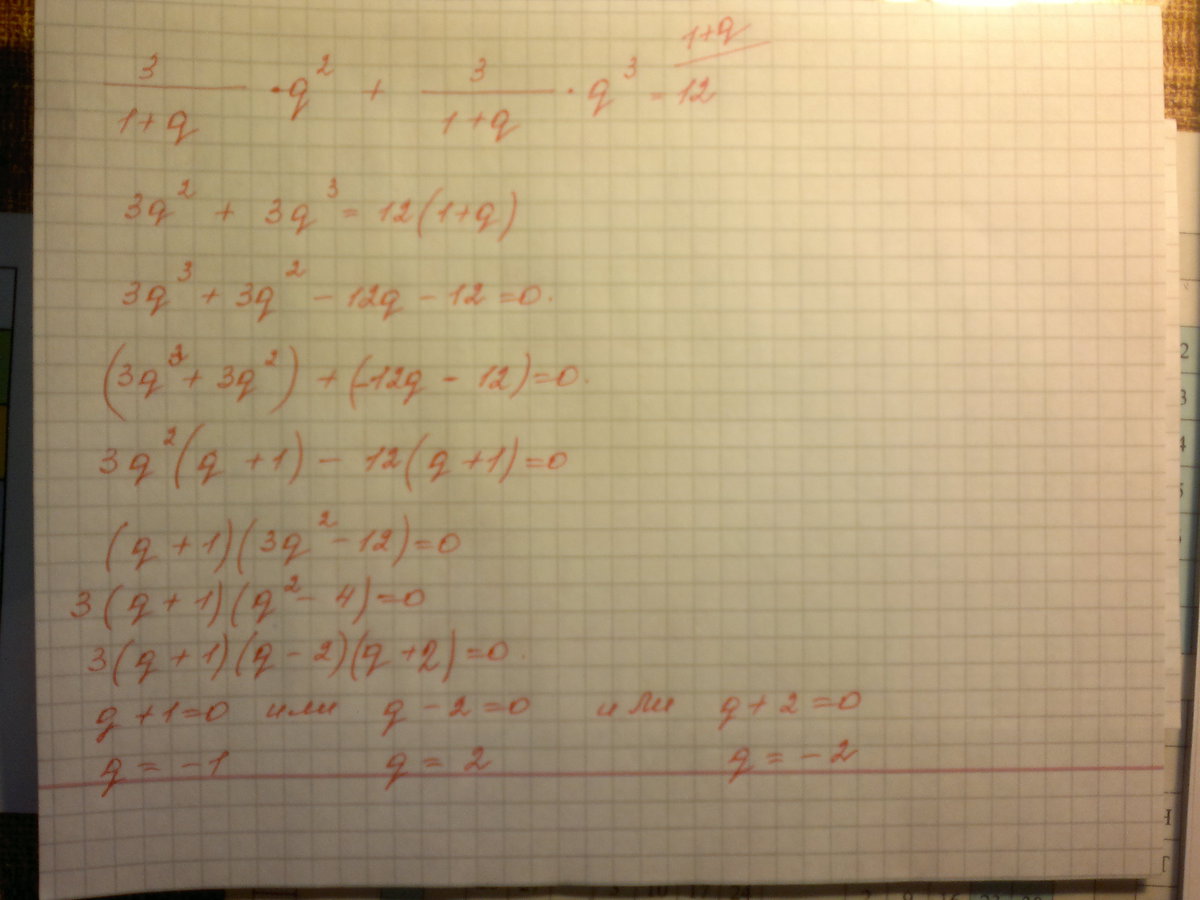 3/(1+q) · q² + 3/(1+q) · q³ = 12 (1+q
3q² + 3q³ = 12(1+q)
3q³ + 3q² - 12q - 12 = 0.
(3q³ + 3q²) + (-12q - 12) = 0.
3q²(q + 1) - 12(q + 1) = 0
(q + 1)(3q² - 12) = 0
3(q + 1)(q² - 4) = 0
3(q + 1)(q - 2)(q + 2) = 0.
q + 1 = 0 или q - 2 = 0 или q + 2 = 0
q = -1 q = 2 q = -2